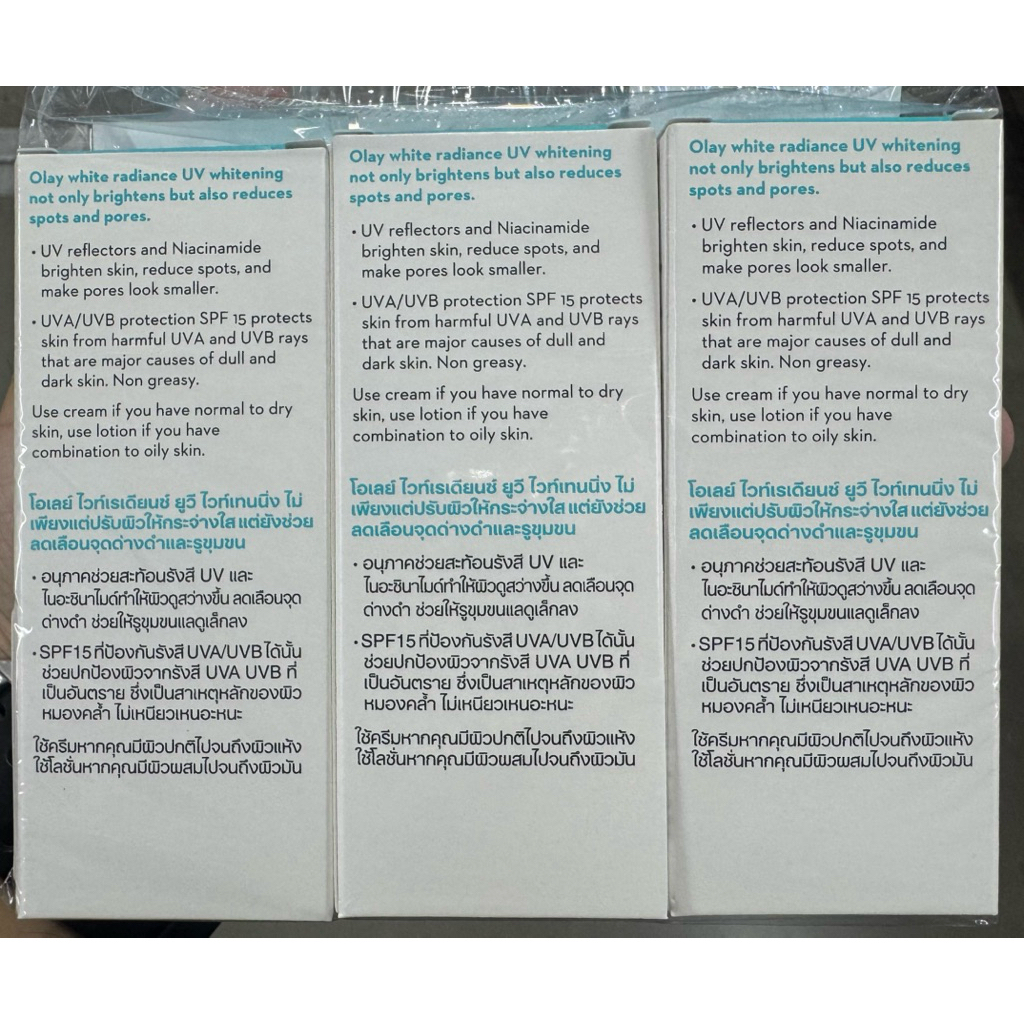 Olay white radiance UV whitening
not only brightens but also reduces
spots and pores.
• UV reflectors and Niacinamide
brighten skin, reduce spots, and
make pores look smaller.
• UVA/UVB protection SPF 15 protects
skin from harmful UVA and UVB rays
that are major causes of dull and
dark skin. Non greasy.
Use cream if you have normal to dry
skin, use lotion if you have
combination to oily skin.
โอเลย์ ไวท์เรเดียนซ์ ยูวี ไวท์เทนนิ่ง ไม่
เพียงแต่ปรับผิวให้กระจ่างใส แต่ยังช่วย
ลดเลือนจุดด่างดำและรูขุมขน
• อนุภาคช่วยสะท้อนรังสี UV และ
ไนอะซินาไมด์ทำให้ผิวดูสว่างขึ้น ลดเลือนจุด
ด่างดำ ช่วยให้รูขุมขนแลดูเล็กลง
• SPF15 ที่ป้องกันรังสี UVA/UVB ได้นั้น
ช่วยปกป้องผิวจากรังสี UVA UVB ที่
เป็นอันตราย ซึ่งเป็นสาเหตุหลักของผิว
หมองคล้ำ ไม่เหนียวเหนอะหนะ
ใช้ครีมหากคุณมีผิวปกติไปจนถึงผิวแห้ง
ใช้โลชั่นหากคุณมีผิวผสมไปจนถึงผิวมัน
Olay white radiance UV whitening
not only brightens but also reduces
spots and pores.
• UV reflectors and Niacinamide
brighten skin, reduce spots, and
make pores look smaller.
• UVA/UVB protection SPF 15 protects
skin from harmful UVA and UVB rays
that are major causes of dull and
dark skin. Non greasy.
Use cream if you have normal to dry
skin, use lotion if you have
combination to oily skin.
โอเลย์ ไวท์เรเดียนซ์ ยูวี ไวท์เทนนิ่ง ไม่
เพียงแต่ปรับผิวให้กระจ่างใส แต่ยังช่วย
ลดเลือนจุดด่างดำและรูขุมขน
• อนุภาคช่วยสะท้อนรังสี UV และ
ไนอะซินาไมด์ทำให้ผิวดูสว่างขึ้น ลดเลือนจุด
ด่างดำ ช่วยให้รูขุมขนแลดูเล็กลง
• SPF15 ที่ป้องกันรังสี UVA/UVB ได้นั้น
ช่วยปกป้องผิวจากรังสี UVA UVB ที่
เป็นอันตราย ซึ่งเป็นสาเหตุหลักของผิว
หมองคล้ำ ไม่เหนียวเหนอะหนะ
ใช้ครีมหากคุณมีผิวปกติไปจนถึงผิวแห้ง
ใช้โลชั่นหากคุณมีผิวผสมไปจนถึงผิวมัน
Olay white radiance UV whitening
not only brightens but also reduces
spots and pores.
• UV reflectors and Niacinamide
brighten skin, reduce spots, and
make pores look smaller.
• UVA/UVB protection SPF 15 protects
skin from harmful UVA and UVB rays
that are major causes of dull and
dark skin. Non greasy.
Use cream if you have normal to dry
skin, use lotion if you have
combination to oily skin.
โอเลย์ ไวท์เรเดียนซ์ ยูวี ไวท์เทนนิ่ง ไม่
เพียงแต่ปรับผิวให้กระจ่างใส แต่ยังช่วย
ลดเลือนจุดด่างดำและรูขุมขน
• อนุภาคช่วยสะท้อนรังสี UV และ
ไนอะซินาไมด์ทำให้ผิวดูสว่างขึ้น ลดเลือนจุด
ด่างดำ ช่วยให้รูขุมขนแลดูเล็กลง
• SPF15 ที่ป้องกันรังสี UVA/UVB ได้นั้น
ช่วยปกป้องผิวจากรังสี UVA UVB ที่
เป็นอันตราย ซึ่งเป็นสาเหตุหลักของผิว
หมองคล้ำ ไม่เหนียวเหนอะหนะ
ใช้ครีมหากคุณมีผิวปกติไปจนถึงผิวแห้ง
ใช้โลชั่นหากคุณมีผิวผสมไปจนถึงผิวมัน